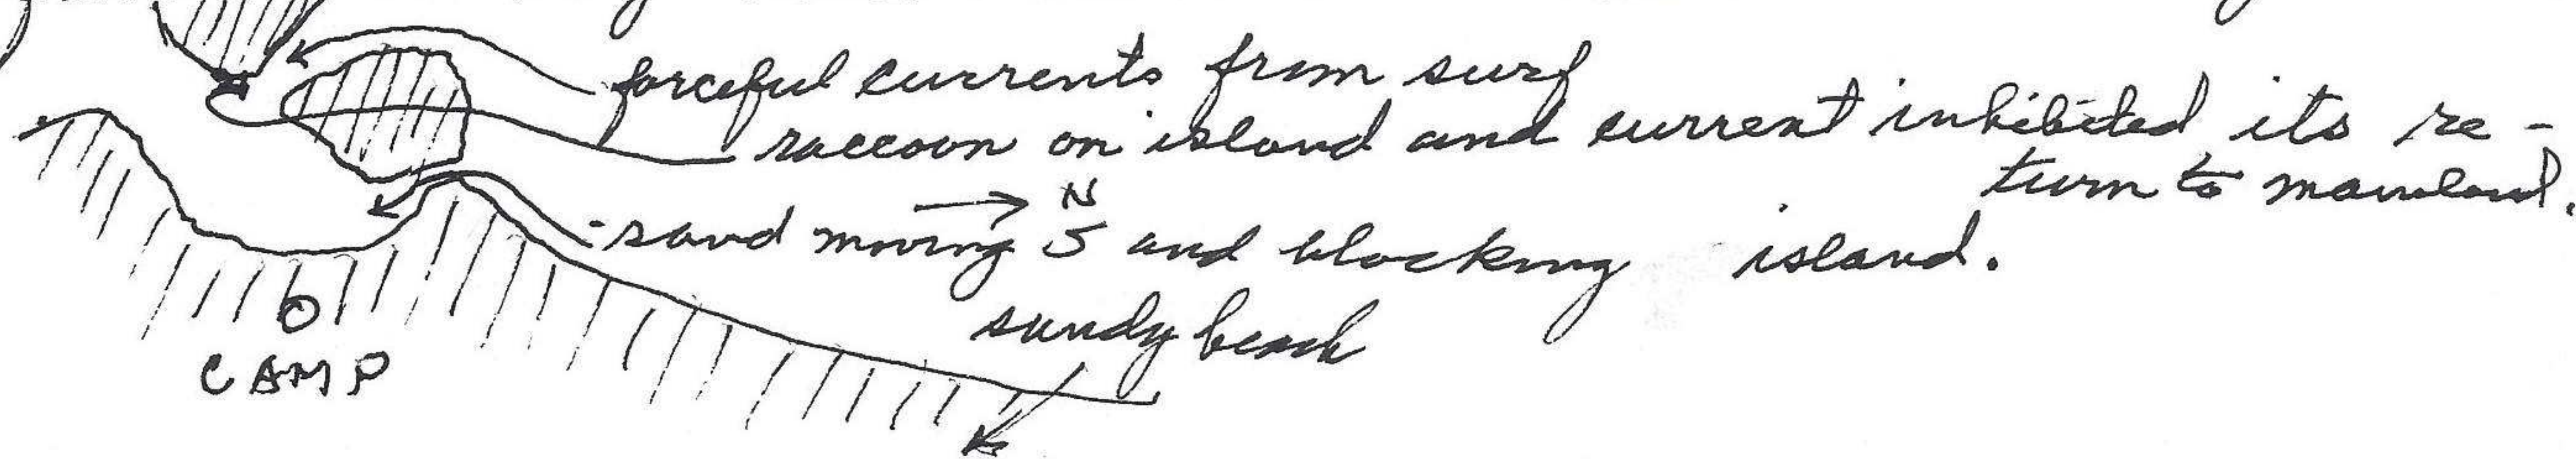 forceful currents from surf
raccoon on island and current inhibited its re-
turn to mainland.
N
- sand moving S and blocking island.
sandy beach
CAMP